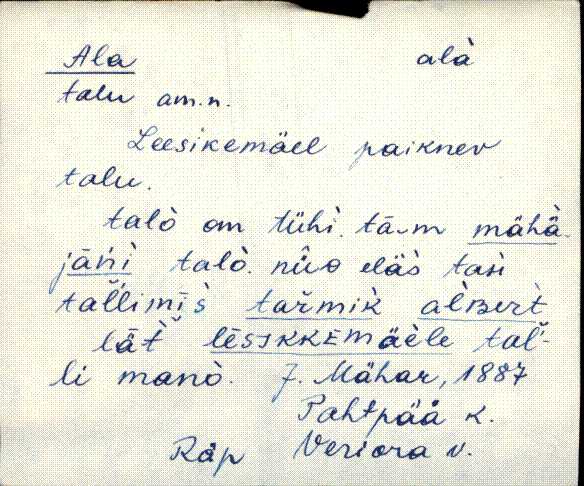 Ala alà
talu am.n.
Leesikemäel paiknev
talu.
talò om tühì. tā-m mähä-
jāńi talò. nüo eläs tasi
tal̆limīs tar̆mik àlbert
lät̆ lēsikkemäele tal̆-
li manò. J. Mähar, 1887
Pahtpää k.
Räp Veriora v.